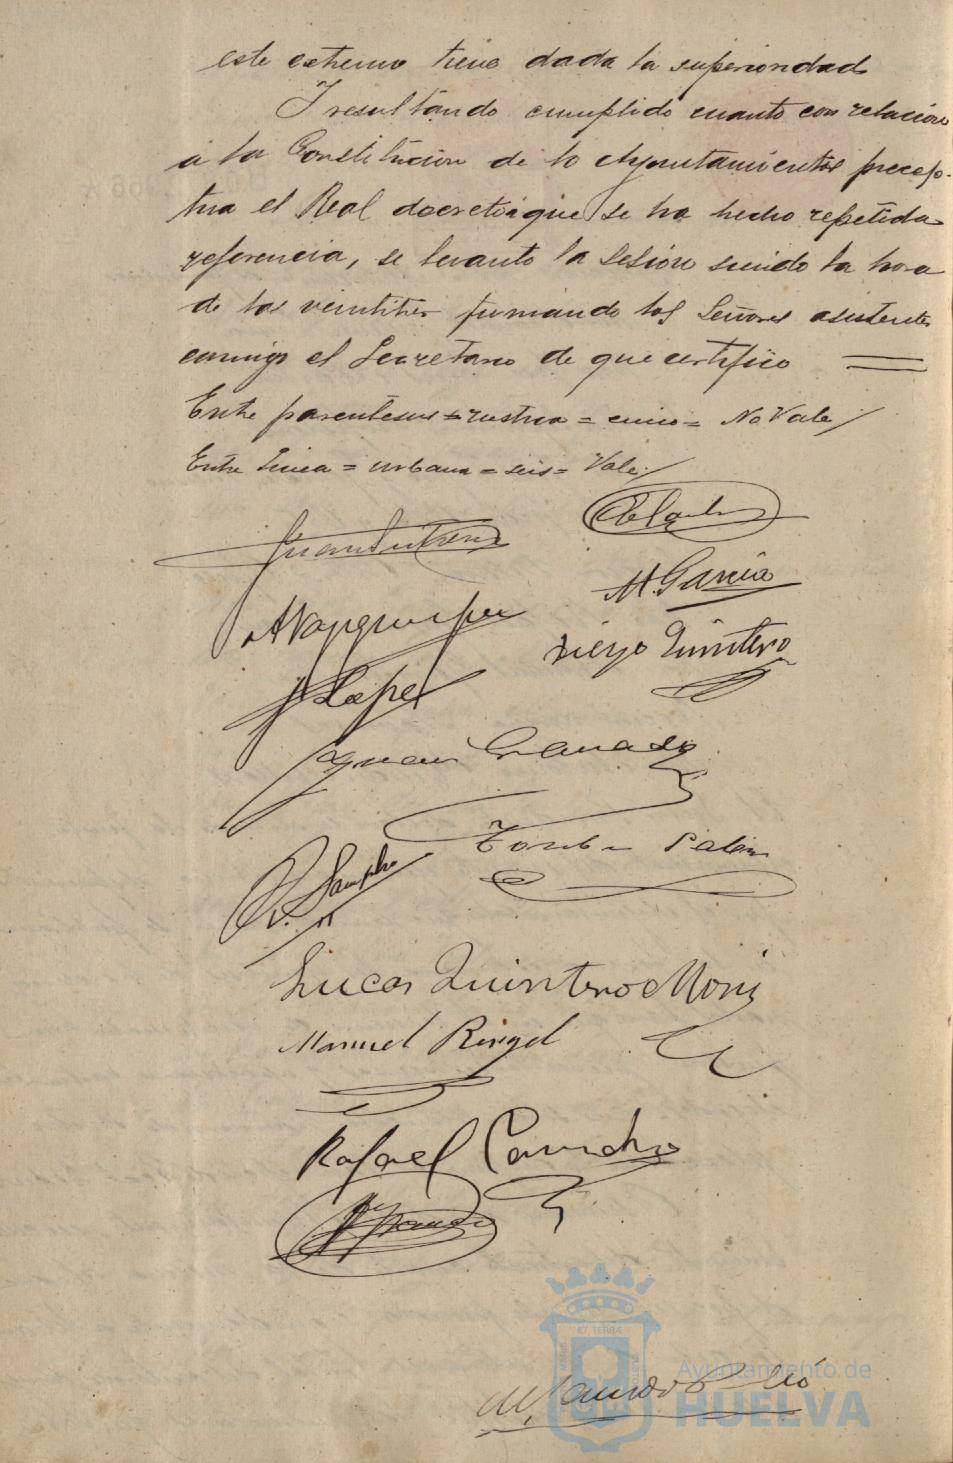 este extremo tiene dada la superioridad
Y resultando cumplido cuanto con relación
a la Constitucion de lo Ayuntamientos precep-
tua el Real decreto á que se ha hecho repetida
referencia, se levanto la sesion siendo la hora
de las veintitres firmando los Señores asistentes
conmigo el Secretario de que certifico
Entre parentesis = rustica = cinco = No Vale
Entre linea = urbana = seis = Vale
M. García
Diego Quintero
J Lopez
Granado
Lucas Quintero Moris
Manuel Rengel
Rafael Camacho
Ayuntamiento de
HUELVA